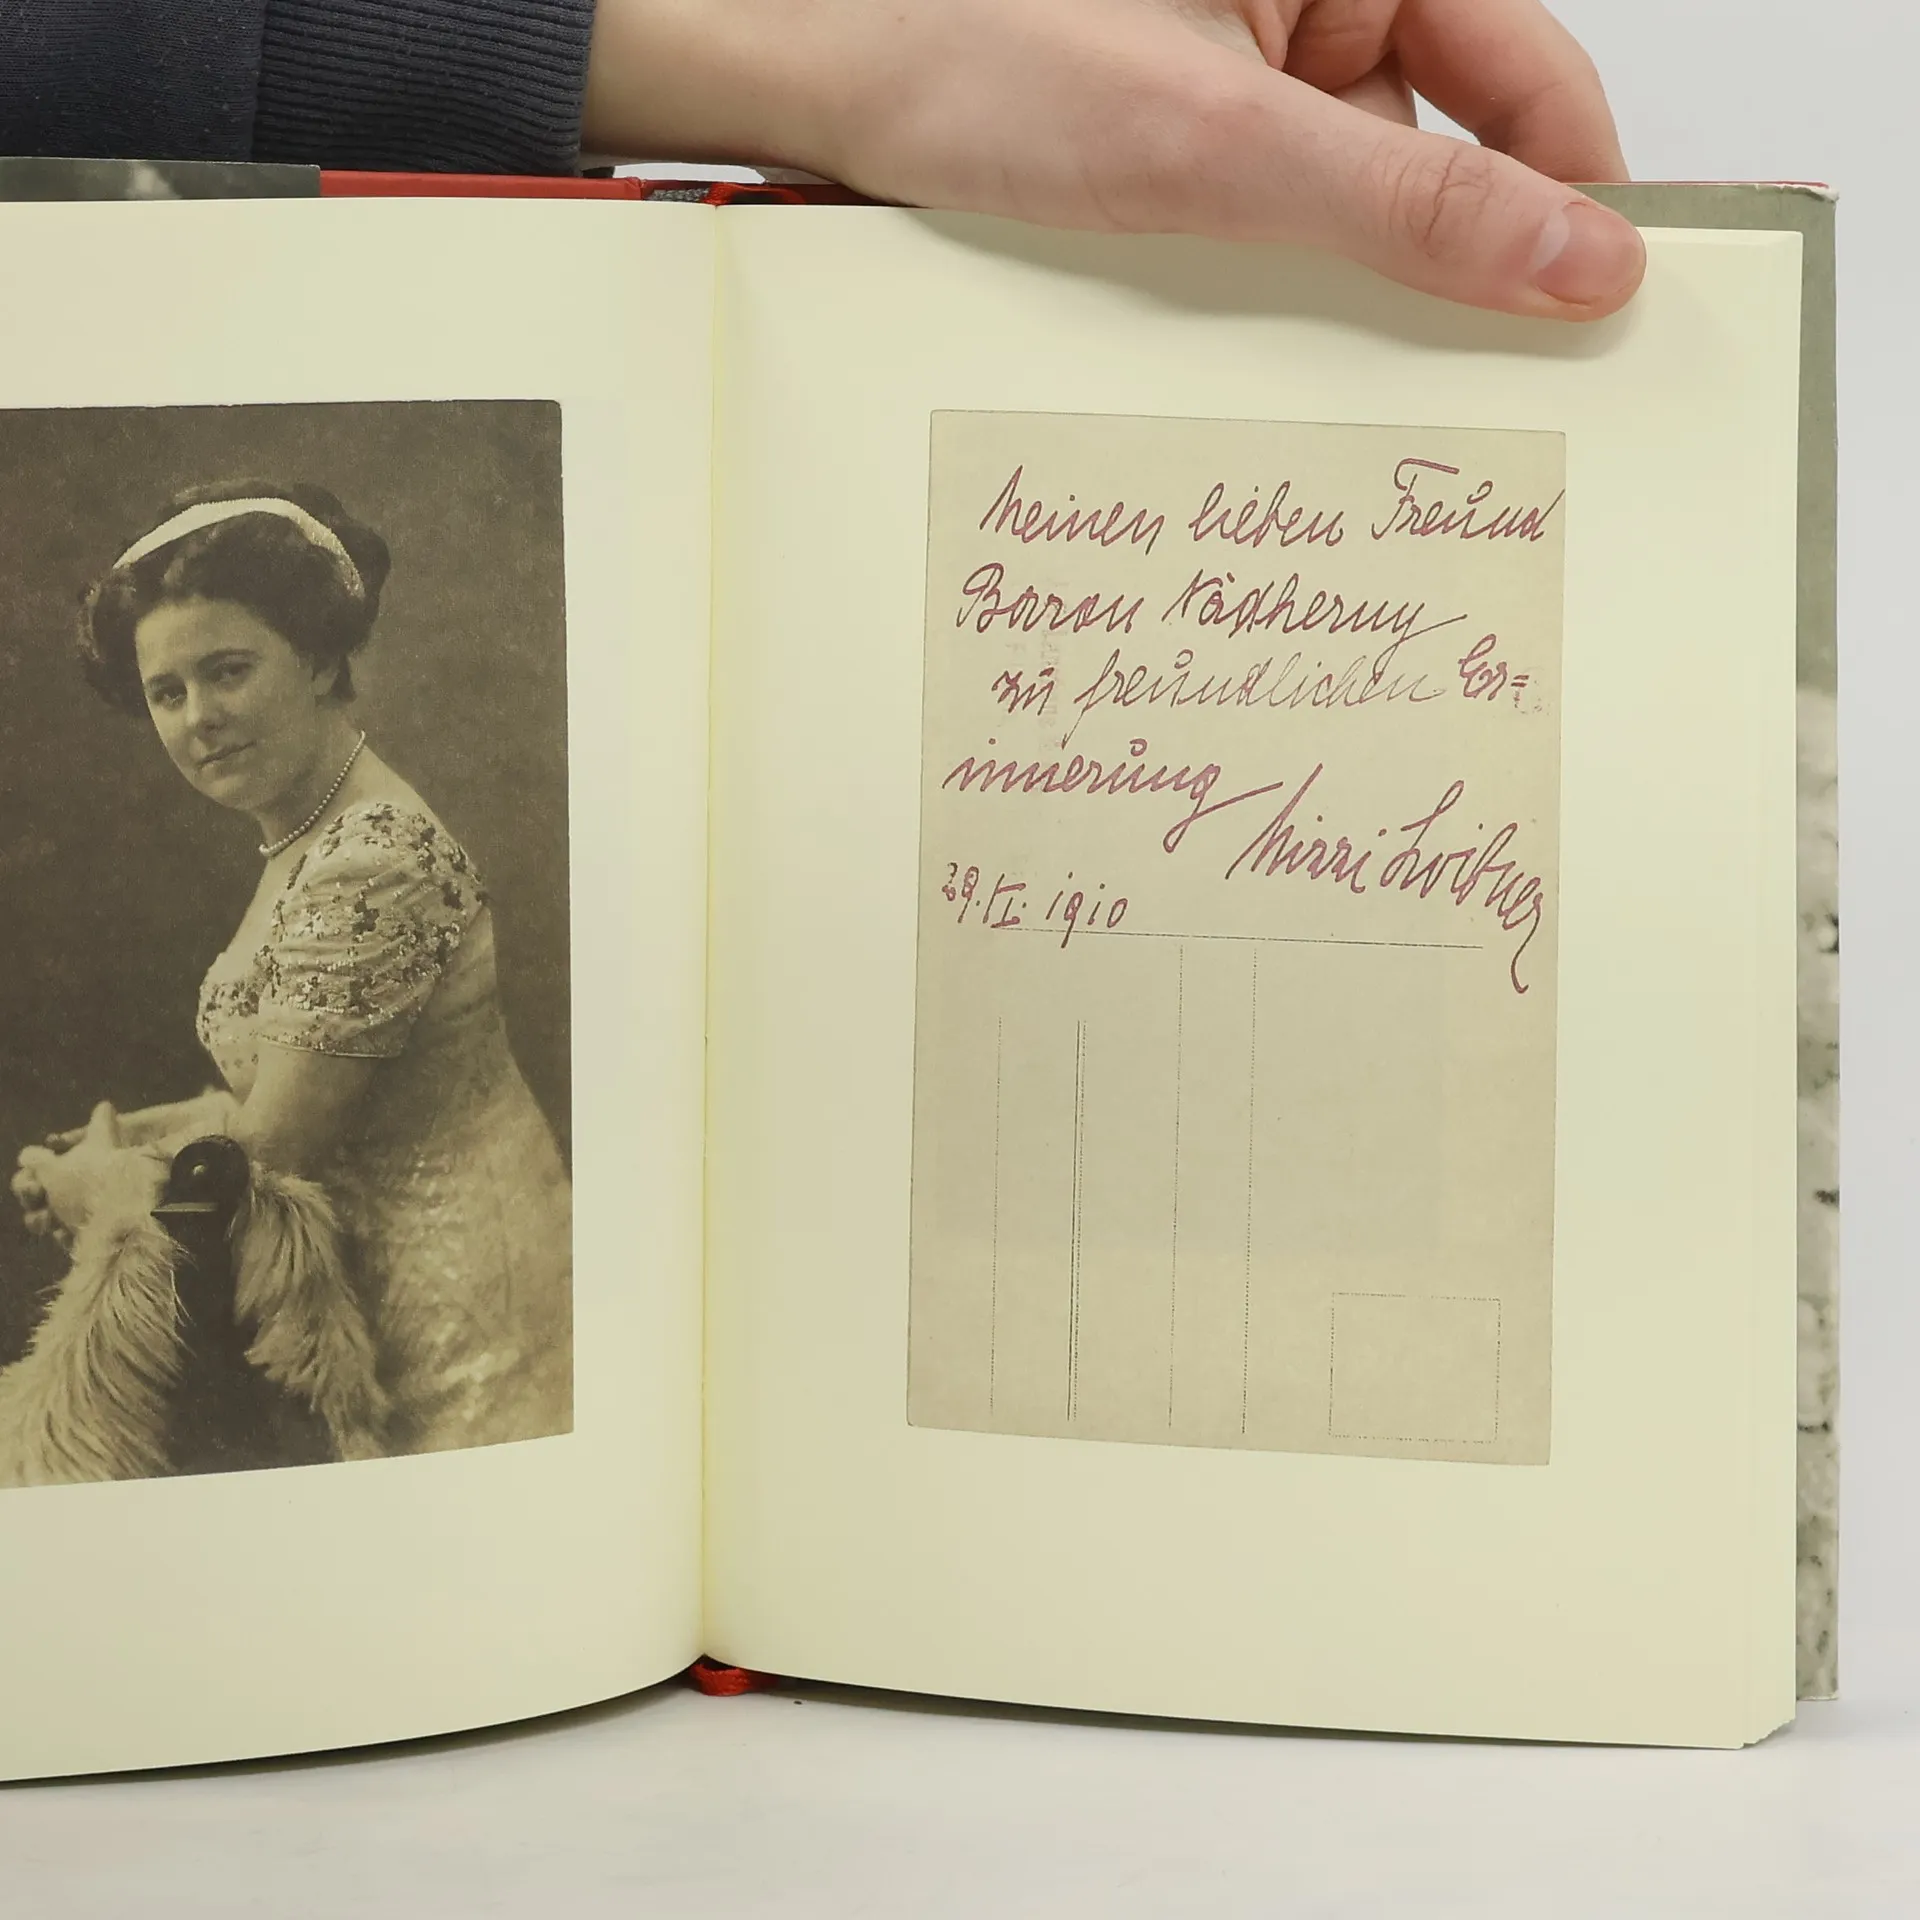 Meinen lieben Freund
Baron Nádherny
zu freundlichen Er=
innerung
Mizzi Loibner
29. VI. 1910